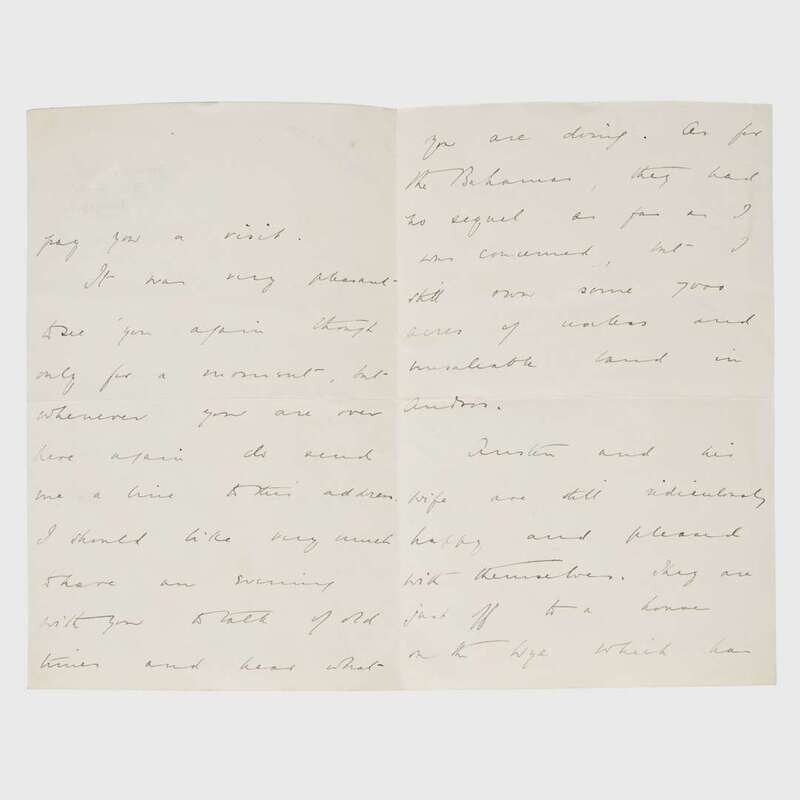 pay you a visit.
It was very pleasant
to see you again though
only for a moment, but
whenever you are over
here again do send
me a line to this address.
I should like very much
to have an evening
with you to talk of old
times and hear what
you are doing. As for
the Bahamas, they had
no sequel as far as I
was concerned, but I
still own some 7000
acres of useless and
unsaleable land in
Andros.
Austen and his
wife are still ridiculously
happy and pleased
with themselves. They are
just off to a house
on the Wye which has